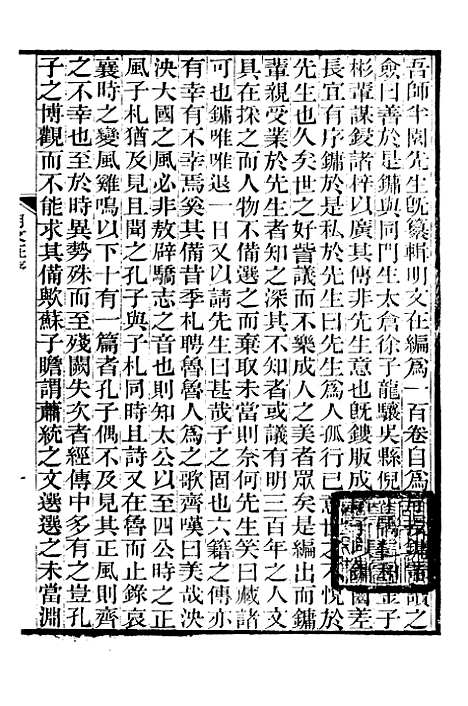 吾師半園先生旣纂輯明文在編爲一百卷自爲之
僉曰善於是鏞與同門生太倉徐子龍驤吳縣倪金子
彬輩謀鋟諸梓以廣其傳非先生意也旣鏤版成差
長宜有序鏞於是私於先生曰先生爲人孤行已悅於
先生也久矣世之好訾議而不樂成人之美者眾矣是編出而鏞
輩親受業於先生者知之深其不知者或議有明三百年之人文
具在採之而人物不備選之而棄取未當則奈何先生笑曰藏諸
可也鏞唯唯退一日又以請先生曰甚哉子之固也六籍之傳亦
有幸有不幸焉奚其備昔季札聘魯魯人爲之歌齊嘆曰美哉泱
泱大國之風必非敖辟驕志之音也則知太公以至四公時之正
風子札猶及見且聞之孔子與子札同時且詩又在魯而止錄哀
襄時之變風雞鳴以下十有一篇者孔子偶不及見其正風則齊
之不幸也至於時異勢殊而至殘闕失次者經傳中多有之豈孔
子之博觀而不能求其備歟蘇子瞻謂蕭統之文選選之未當淵
明文在序